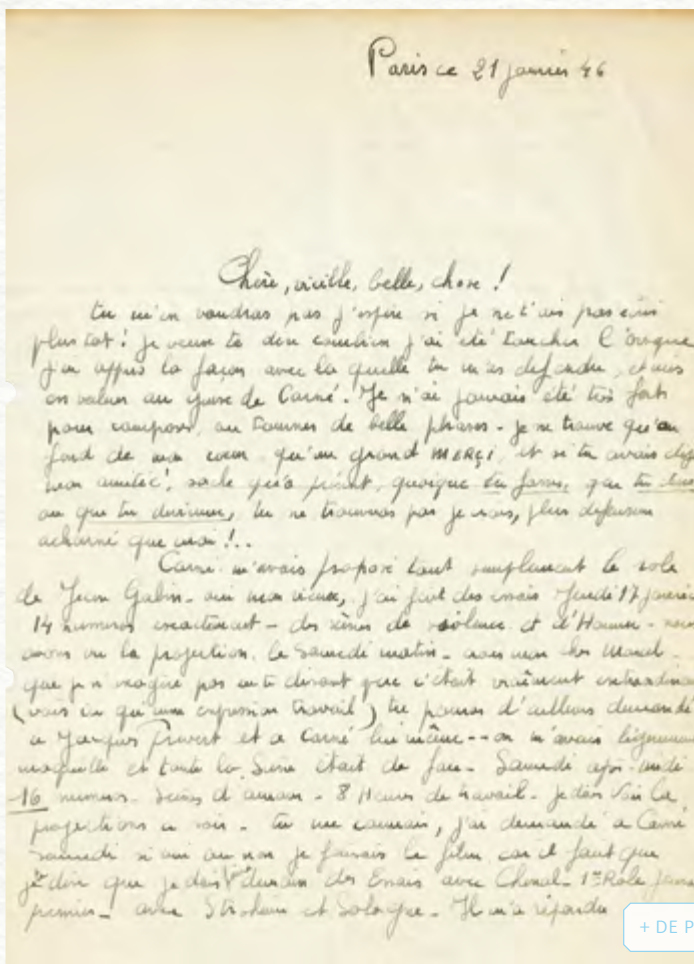 Paris ce 21 janvier 46
Chère, vieille, belle, chose !
tu m'en voudras pas j'espère si je ne t'ais pas
plus tot ! je veux te dire combien j'ai été toucher
j'ai appris la façon avec la quelle tu m'as defendu,
en valeur au de Carné. Je n'ai jamais été très fort
pour composer, ou tourner de belle phrases - je ne trouve qu'au
fond de mon coeur qu'un grand MERÇI, et si tu avais
mon amitié ! sache qu'a présent, quoique tu fasses, que tu
ou que tu devienne, tu ne trouveras pas je crois, plus defenseur
acharné que moi !..
Carné m'avais proposé tout simplement le role
de Jean Gabin - oui mon vieux, j'ai fait des essais Jeudi 17 janvier
14 numeros exactement - des scènes de violence et d'Humour -
avons vu la projection, le Samedi matin - mon cher Marcel -
que je n'exagère pas en te disant que c'était vraiment
( qu'une expression travail) tu pourras d'ailleurs demandé
a Jacques Prevert et a Carné lui même -- on m'avais
maquillé et toute la Scène était de face - Samedi après-midi
-16 numeros - Scènes d'amour - 8 Heures de travail - je dois voir la
projections ce soir - tu me connais, j'ai demandé a Carné
Samedi si oui ou non je faisais le film car il faut que
je dise que je dois des Essais avec Chenal - 1er Role jeune
premier - avec Stroheim et Sologne - Il m'a répondu
+ DE P